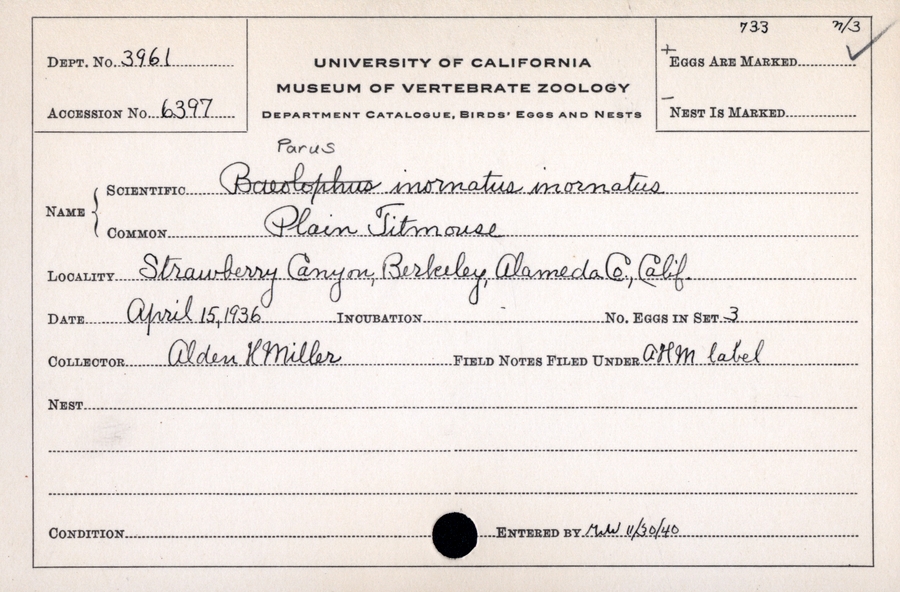 733 n/3
DEPT. No. 3961
UNIVERSITY OF CALIFORNIA
+ EGGS ARE MARKED ✓
MUSEUM OF VERTEBRATE ZOOLOGY
ACCESSION No. 6397
DEPARTMENT CATALOGUE, BIRDS' EGGS AND NESTS
– NEST IS MARKED
Parus
NAME { SCIENTIFIC Baeolophus inornatus inornatus
COMMON Plain Titmouse
LOCALITY Strawberry Canyon, Berkeley, Alameda Co., Calif.
DATE April 15, 1936 INCUBATION No. EGGS IN SET 3
COLLECTOR Alden H Miller FIELD NOTES FILED UNDER AHM label
NEST
CONDITION ENTERED BY 11/30/40